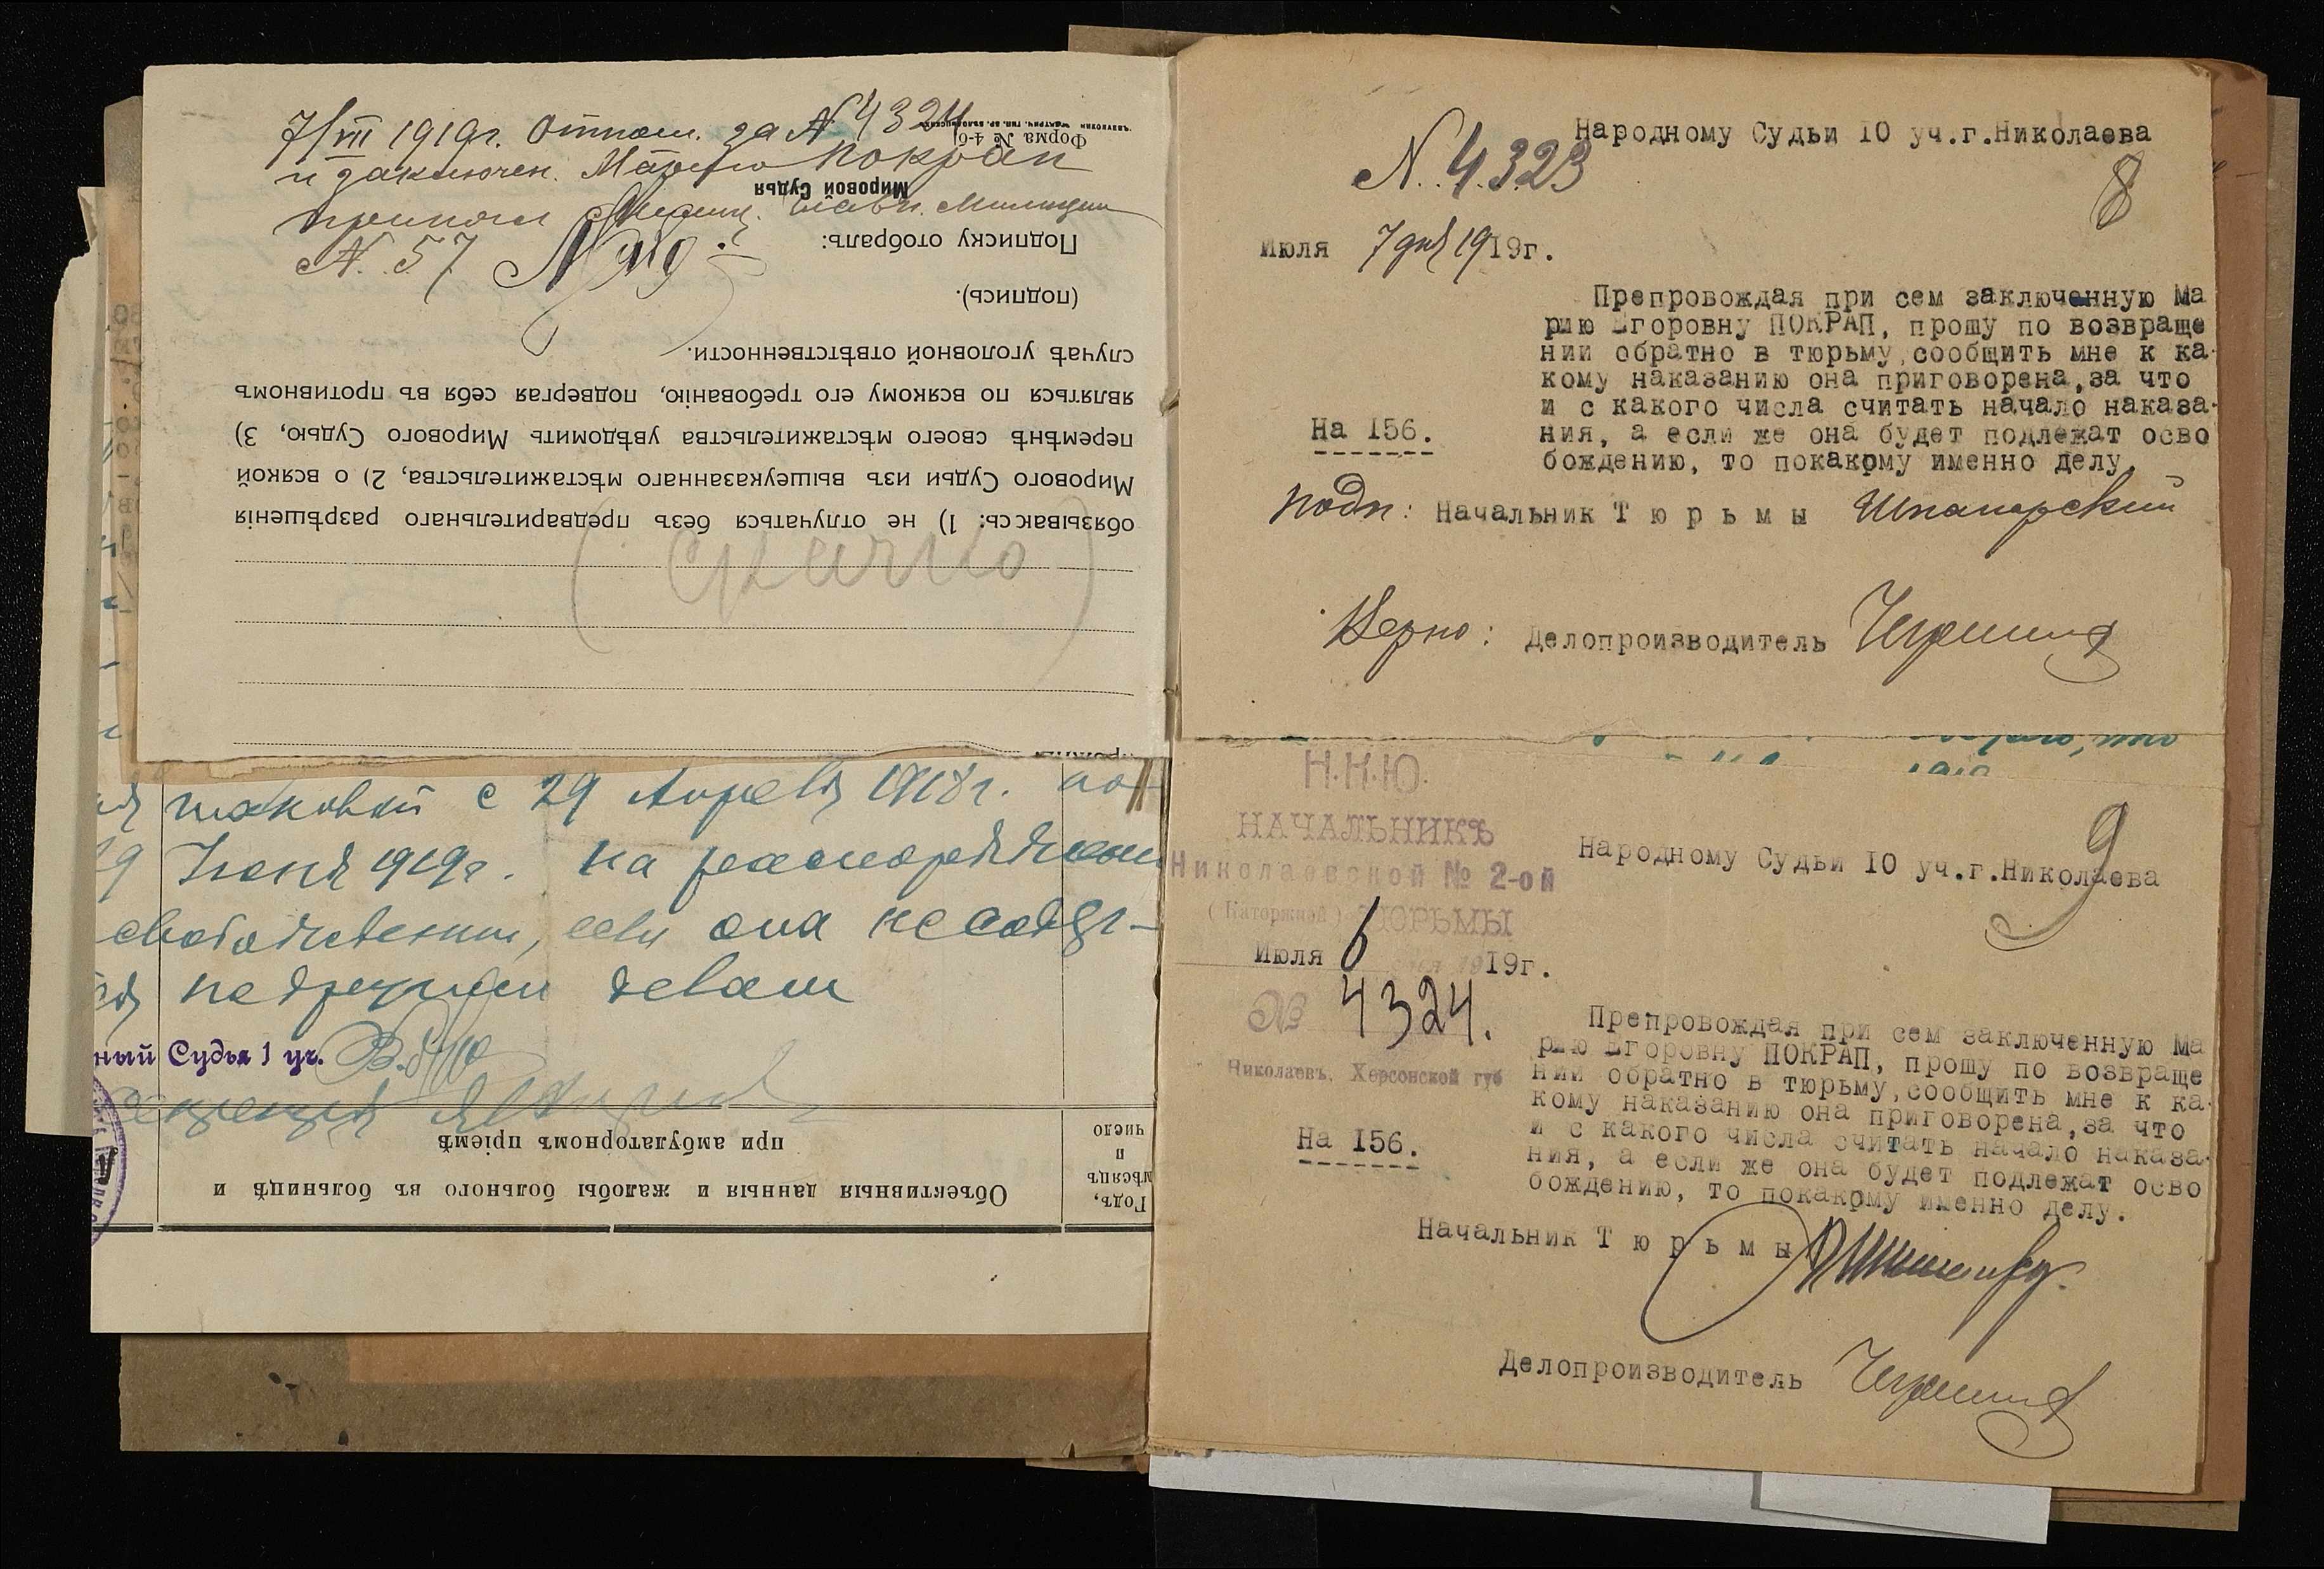 7/VII 1919г. Отнош. за № 4324
и заключен. Марию Покрап
принял
N. 57
Форма № 4-6
Мировой Судья
Подписку отобралъ:
(подпись).
случаѣ уголовной отвѣтственности.
являться по всякому его требованію, подвергая себя въ противномъ
перемѣнѣ своего мѣстажительства увѣдомить Мирового Судью, 3)
Мирового Судьи изъ вышеуказаннаго мѣстажительства, 2) о всякой
обязываюсь: 1) не отлучаться безъ предварительнаго разрѣшенія
с 29 Апреля 1918г. по
19 Июня 1919г. на распоряжен
если она не содер-
по другим делам
ный Судья 1 уч.
при амбулаторномъ пріемѣ
Объективныя данныя и жалобы больного въ больницѣ и
Годъ,
мѣсяцъ
и
число
Народному Судьи 10 уч.г.Николаева
N. 4323
8
Июля 7 дня 1919г.
Препровождая при сем заключенную Ма
рию Егоровну ПОКРАП, прошу по возвраще
нии обратно в тюрьму,сообщить мне к ка-
кому наказанию она приговорена,за что
и с какого числа считать начало наказа-
На 156.
ния, а если же она будет подлежат осво
бождению, то покакому именно делу.
подп: Начальник Т ю р ь м ы
Верно: Делопроизводитель
Н.К.Ю.
НАЧАЛЬНИКЪ
Николаевской № 2-ой
(Каторжной) ТЮРЬМЫ
Народному Судьи 10 уч.г.Николаева
9
Июля 6 дня 1919г.
№ 4324.
Николаевъ, Херсонской губ
Препровождая при сем заключенную Ма
рию Егоровну ПОКРАП, прошу по возвраще
нии обратно в тюрьму,сообщить мне к ка-
кому наказанию она приговорена,за что
и с какого числа считать начало наказа-
На 156.
ния, а если же она будет подлежат осво
бождению, то покакому именно делу.
Начальник Т ю р ь м ы
Делопроизводитель